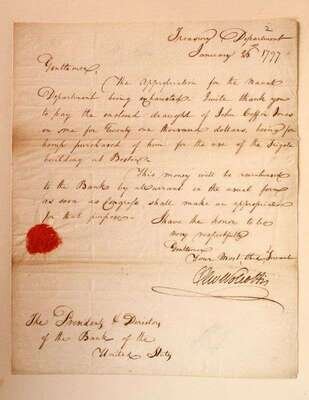 Treasury Department
January 26th 1797
Gentlemen,
The Appropriation for the Naval
Department being exhausted I will thank you
to pay the enclosed draught of John Coffin Jones
on me for Twenty one thousand dollars, being for
hemp purchased of him for the use of the Frigate
building at Boston.
This money will be reimbursed
to the Bank by a Warrant in the usual form
as soon as Congress shall make an appropriation
for that purpose.
I have the honor to be
very respectfully
Gentlemen
Your Most Obed Servant
Oliv Wolcott
The President & Directors
of the Bank of the
United States